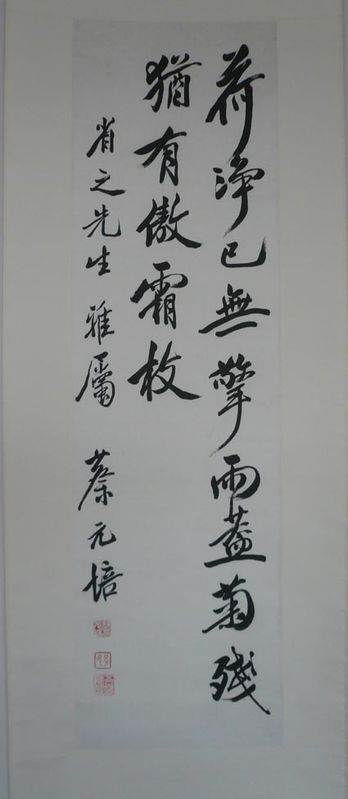 荷浄已無擎雨蓋菊殘
猶有傲霜枝
省之先生雅屬 蔡元培